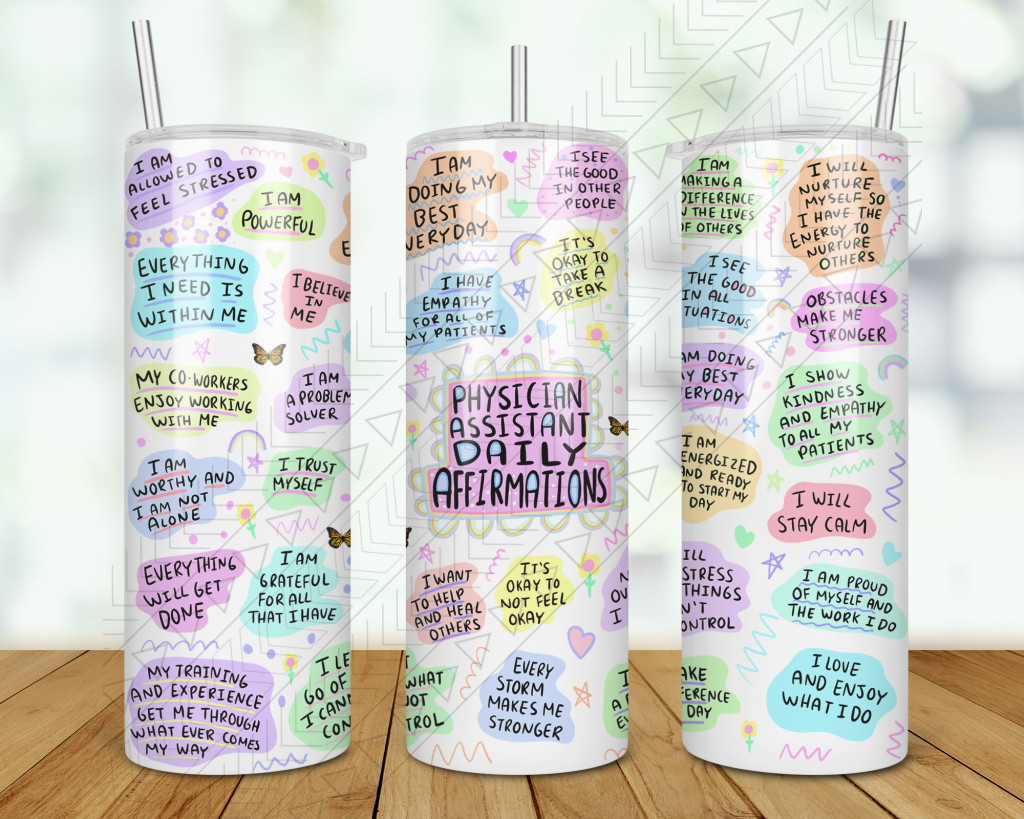 I AM
ALLOWED TO
FEEL STRESSED
I AM
POWERFUL
EVERYTHING
I NEED IS
WITHIN ME
I BELIEVE
IN
ME
MY CO-WORKERS
ENJOY WORKING
WITH ME
I AM
A PROBLEM
SOLVER
I AM
WORTHY AND
I AM NOT
ALONE
I TRUST
MYSELF
EVERYTHING
WILL GET
DONE
I AM
GRATEFUL
FOR ALL
THAT I HAVE
MY TRAINING
AND EXPERIENCE
GET ME THROUGH
WHAT EVER COMES
MY WAY
I LE
GO OF
I CAN
CON
I AM
DOING MY
BEST
VERYDAY
I SEE
THE GOOD
IN OTHER
PEOPLE
IT'S
OKAY TO
TAKE A
BREAK
I HAVE
EMPATHY
FOR ALL OF
MY PATIENTS
PHYSICIAN
ASSISTANT
DAILY
AFFIRMATIONS
I WANT
TO HELP
AND HEAL
OTHERS
IT'S
OKAY TO
NOT FEEL
OKAY
WHAT
OT
TROL
EVERY
STORM
MAKES ME
STRONGER
I AM
MAKING A
DIFFERENCE
N THE LIVES
OF OTHERS
I WILL
NURTURE
MYSELF SO
I HAVE THE
ENERGY TO
NURTURE
OTHERS
I SEE
THE GOOD
IN ALL
TUATIONS
OBSTACLES
MAKE ME
STRONGER
AM DOING
Y BEST
ERYDAY
I SHOW
KINDNESS
AND EMPATHY
TO ALL MY
PATIENTS
I AM
ENERGIZED
AND READY
TO START MY
DAY
I WILL
STAY CALM
ILL
STRESS
THINGS
N'T
ONTROL
I AM PROUD
OF MYSELF AND
THE WORK I DO
AKE
FERENCE
DAY
I LOVE
AND ENJOY
WHAT I DO